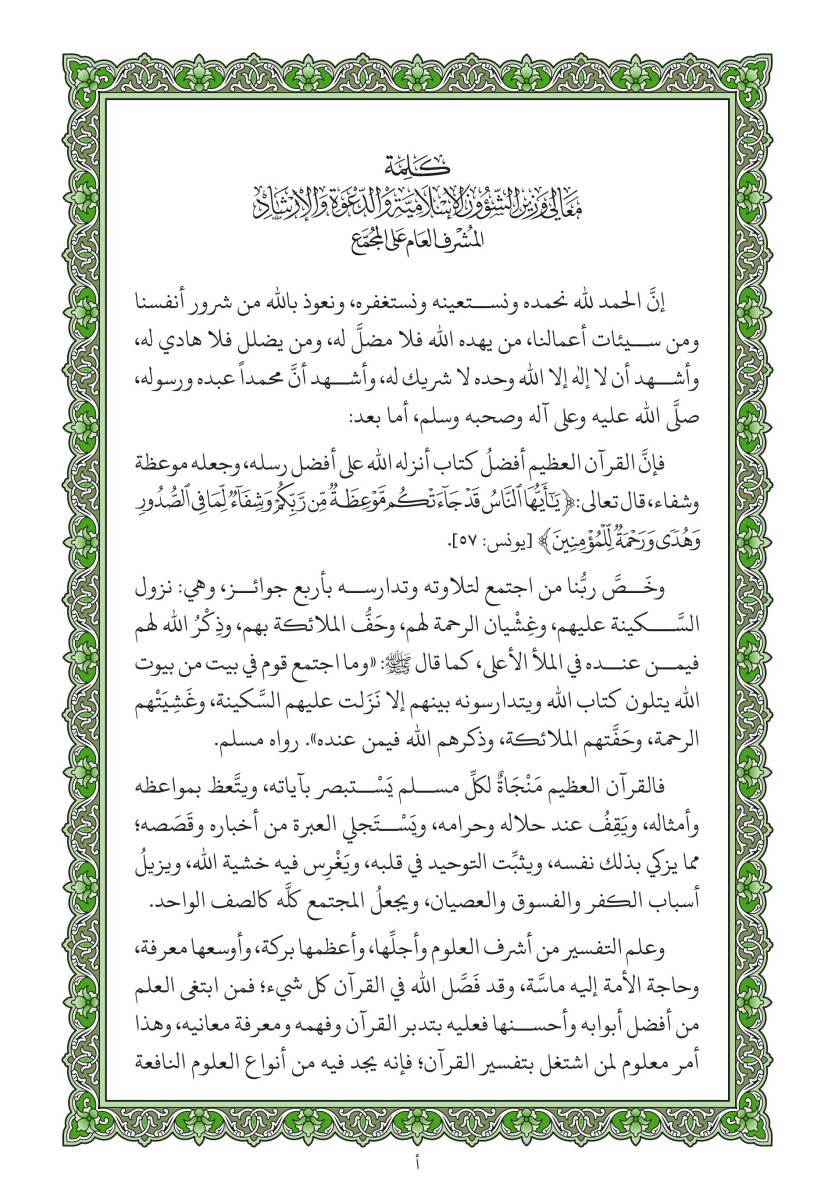 كَلِمَة
مَعَالِي وَزِير الشُّؤُون الإِسْلَامِيَّة وَالدَّعْوَة وَالإِرْشَاد
المُشْرِف العَام عَلَى المُجَمَّع
إنَّ الحمد لله نحمده ونستعينه ونستغفره، ونعوذ بالله من شرور أنفسنا
ومن سيئات أعمالنا، من يهده الله فلا مضلَّ له، ومن يضلل فلا هادي له،
وأشهد أن لا إله إلا الله وحده لا شريك له، وأشهد أنَّ محمداً عبده ورسوله،
صلَّى الله عليه وعلى آله وصحبه وسلم، أما بعد:
فإنَّ القرآن العظيم أفضلُ كتاب أنزله الله على أفضل رسله، وجعله موعظة
وشفاء، قال تعالى: ﴿يَٰٓأَيُّهَا ٱلنَّاسُ قَدْ جَآءَتْكُم مَّوْعِظَةٌ مِّن رَّبِّكُمْ وَشِفَآءٌ لِّمَا فِي ٱلصُّدُورِ
وَهُدًى وَرَحْمَةٌ لِّلْمُؤْمِنِينَ﴾ [يونس: ٥٧].
وخَصَّ ربُّنا من اجتمع لتلاوته وتدارسه بأربع جوائز، وهي: نزول
السَّكينة عليهم، وغِشْيان الرحمة لهم، وحَفُّ الملائكة بهم، وذِكْرُ الله لهم
فيمن عنده في الملأ الأعلى، كما قال ﷺ: «وما اجتمع قوم في بيت من بيوت
الله يتلون كتاب الله ويتدارسونه بينهم إلا نَزَلت عليهم السَّكينة، وغَشِيَتْهم
الرحمة، وحَفَّتهم الملائكة، وذكرهم الله فيمن عنده». رواه مسلم.
فالقرآن العظيم مَنْجَاةٌ لكلِّ مسلم يَسْتبصر بآياته، ويتَّعظ بمواعظه
وأمثاله، ويَقِفُ عند حلاله وحرامه، ويَسْتَجلي العبرة من أخباره وقَصَصه؛
مما يزكي بذلك نفسه، ويثبِّت التوحيد في قلبه، ويَغْرِس فيه خشية الله، ويزيلُ
أسباب الكفر والفسوق والعصيان، ويجعلُ المجتمع كلَّه كالصف الواحد.
وعلم التفسير من أشرف العلوم وأجلِّها، وأعظمها بركة، وأوسعها معرفة،
وحاجة الأمة إليه ماسَّة، وقد فَصَّل الله في القرآن كل شيء؛ فمن ابتغى العلم
من أفضل أبوابه وأحسنها فعليه بتدبر القرآن وفهمه ومعرفة معانيه، وهذا
أمر معلوم لمن اشتغل بتفسير القرآن؛ فإنه يجد فيه من أنواع العلوم النافعة
أ